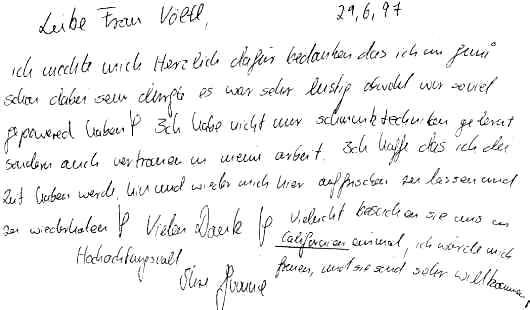 Leibe Frau Völll, 29,6,97
ich mochte mich Herzlich dafür bedanken das ich im Juni
schon dabei sein durfte es war sehr lustig wir soviel
gepowered haben Ich habe nicht nur schminktechniken gelernt
sondern auch vertrauen in meine arbeit. Ich hoffe das ich die
Zeit haben werde, hin und wieder mich hier auffrischen zu lassen und
zu wiederholen Vielen Dank vieleicht besuchen sie uns in
Californien einmal, ich würde mich
Hochachtungsvoll freuen, und sie sind sehr willkommen,
Ihre